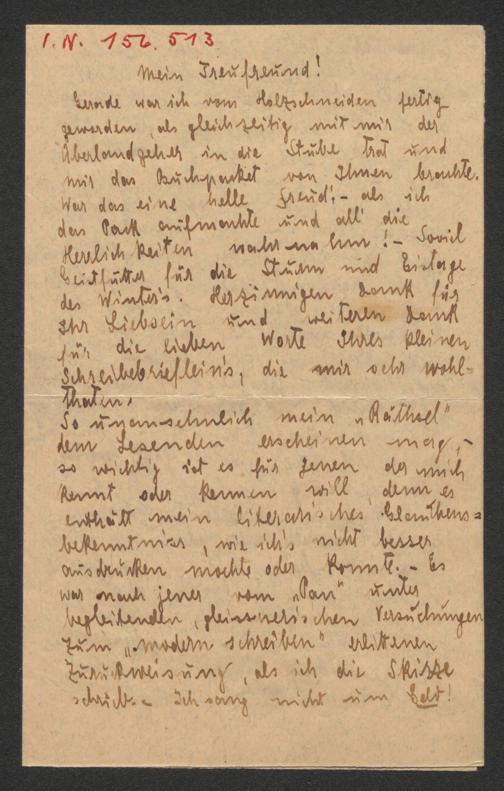 I.N. 156.513
Mein Treufreund!
Gerade war ich vom Holzschneiden fertig
geworden, als gleichzeitig mit mir der
Überlandgeher in die Stube trat und
mir das Buchpacket von Ihnen brachte.
War das eine helle Freud', - als ich
das Pack aufmachte und all' die
Herrlichkeiten wahrnahm! - Soviel
Geistfutter für die Sturm und Eistage
des Winters. Herzinnigen Dank für
Ihr Liebsein und weiteren Dank
für die lieben Worte Ihres kleinen
Schreibebriefleins, die mir sehr wohl=
thaten.
So unansehnlich mein „Räthsel"
dem Lesenden erscheinen mag, -
so wichtig ist es für Jenen der mich
kennt oder kennen will, denn es
enthält mein literarisches Glaubens=
bekenntniss, wie ich's nicht besser
ausdrücken möchte oder könnte. - Es
war nach jener vom „Pan" unter
begleitenden, gleissnerischen Versuchungen
zum „modern schreiben" erlittenen
Zurückweisung, als ich die Skizze
schrieb. - Ich sang nicht um Geld!